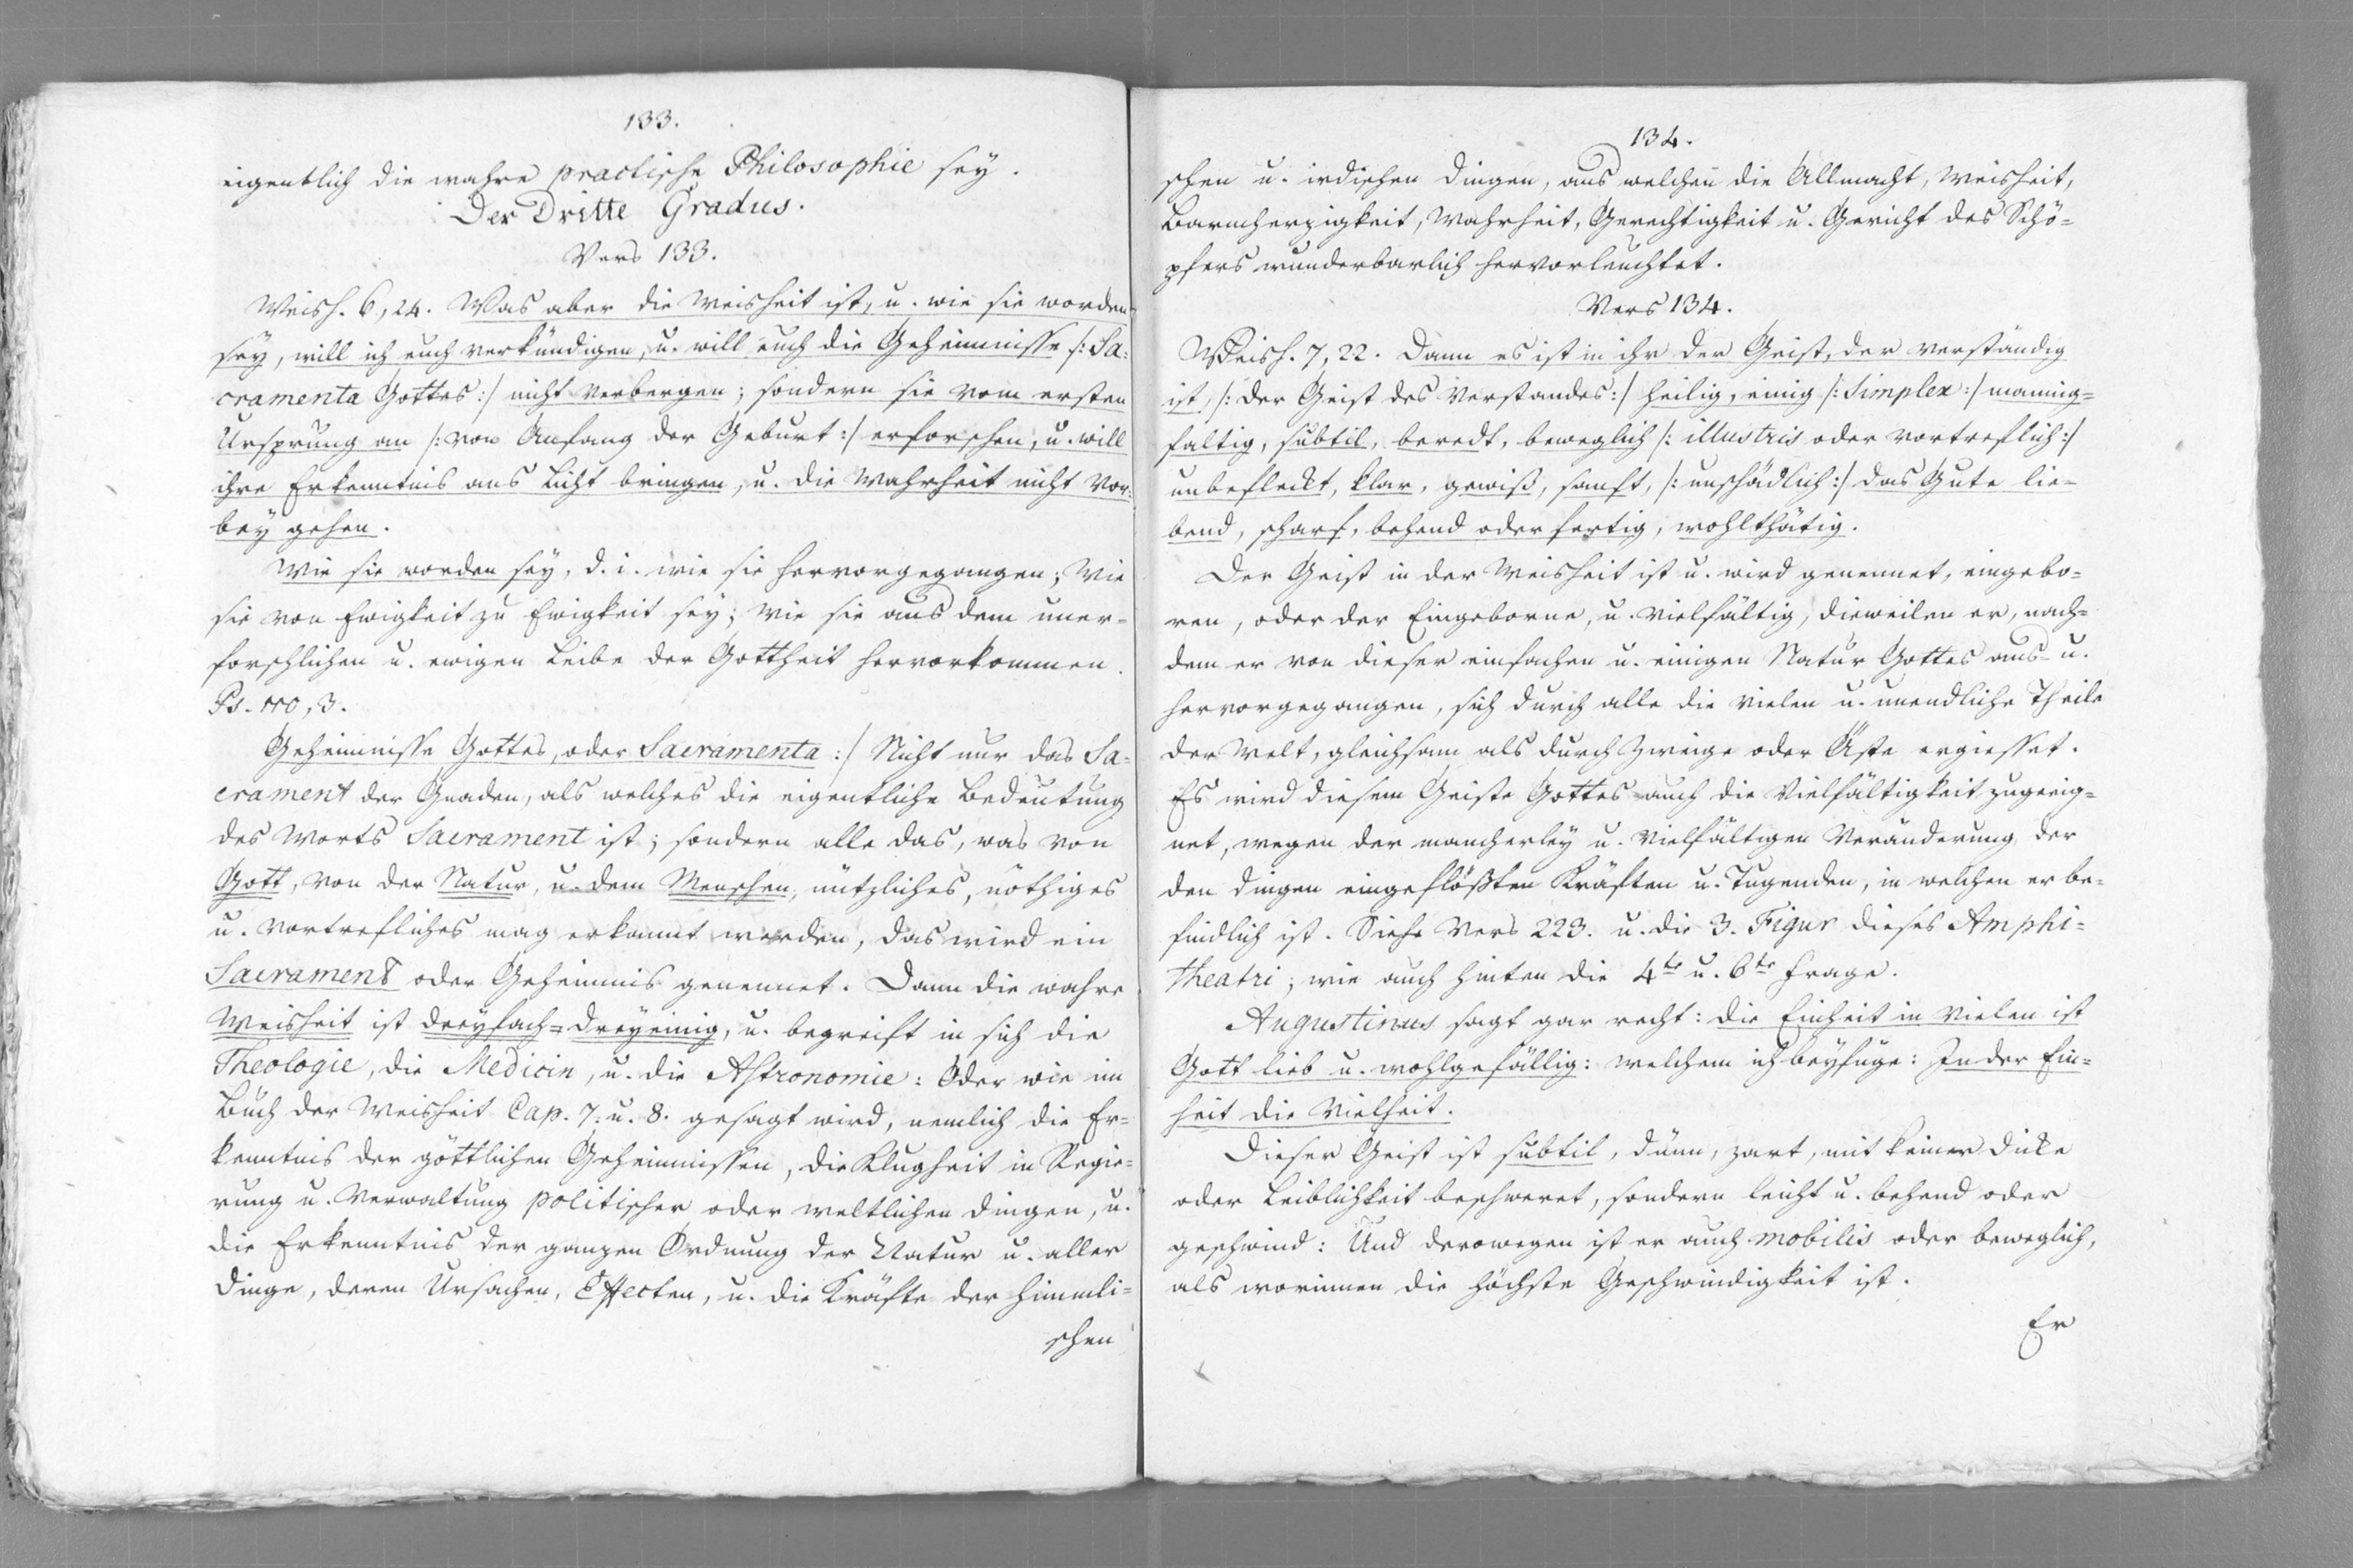 133.
eigentlich die wahre practische Philosophie sey.
Der Dritte Gradus.
Vers 133.
Weish. 6, 24. Was aber die Weisheit ist, u. wie sie worden
sey, will ich euch verkündigen, u. will euch die Geheimnisse /: Sa-
cramenta Gottes :/ nicht verbergen; sondern sie vom ersten
Ursprung an /: von Anfang der Geburt :/ erforschen, u. will
ihre Erkenntnis ans Licht bringen, u. die Wahrheit nicht vor-
bey gehen.
Wie sie worden sey, d. i. wie sie hervorgegangen; Wie
sie von Ewigkeit zu Ewigkeit sey; wie sie aus dem uner-
forschlichen u. ewigen Leibe der Gottheit hervorkommen.
Ps. 110, 3.
Geheimnisse Gottes, oder Sacramenta :/ Nicht nur das Sa-
crament der Gnaden, als welches die eigentliche Bedeutung
des Worts Sacrament ist; sondern alle das, was von
Gott, von der Natur, u. dem Menschen, nützliches, nöthiges
u. vortrefliches mag erkannt werden, das wird ein
Sacrament oder Geheimnis genennet. Dann die wahre
Weisheit ist dreyfach=dreyeinig, u. begreift in sich die
Theologie, die Medicin, u. die Astronomie: Oder wie im
Buch der Weisheit Cap. 7. u. 8. gesagt wird, nemlich die Er-
kenntnis der göttlichen Geheimnissen, die Klugheit in Regie-
rung u. Verwaltung politischer oder weltlichen Dingen, u.
die Erkenntnis der ganzen Ordnung der Natur u. aller
Dinge, deren Ursachen, Effecten, u. die Kräfte der himmli-
schen
134.
schen u. irdischen Dingen, aus welchen die Allmacht, Weisheit,
Barmherzigkeit, Wahrheit, Gerechtigkeit u. Gericht des Schö-
pfers wunderbarlich hervorleuchtet.
Vers 134.
Weish. 7, 22. Dann es ist in ihr der Geist, der verständig
ist, /: der Geist des Verstandes :/ heilig, einig /: Simplex :/ mannig-
faltig, subtil, beredt, beweglich /: illustris oder vortreflich :/
unbefleckt, klar, gewiß, sanft, /: unschädlich :/ das Gute lie-
bend, scharf, behend oder fertig, wohlthätig.
Der Geist in der Weisheit ist u. wird genennet, eingebo-
ren, oder der Eingeborne, u. vielfältig, dieweilen er, nach-
dem er von dieser einfachen u. einigen Natur Gottes aus- u.
hervorgegangen, sich durch alle die vielen u. unendliche Theile
der Welt, gleichsam als durch Zweige oder Äste ergiesset.
Es wird diesem Geiste Gottes auch die Vielfältigkeit zugeeig-
net, wegen der mancherley u. vielfältigen Veränderung der
den Dingen eingeflößten Kräften u. Tugenden, in welchen er be-
findlich ist. Siehe Vers 223. u. die 3. Figur dieses Amphi-
theatri; wie auch hinten die 4te u. 6te Frage.
Augustinus sagt gar recht: Die Einheit in Vielen ist
Gott lieb u. wohlgefällig: welchem ich beyfüge: In der Ein-
heit die Vielheit.
Dieser Geist ist subtil, dünn, zart, mit keiner Dicke
oder Leiblichkeit beschweret, sondern leicht u. behend oder
geschwind: Und derowegen ist er auch mobilis oder beweglich,
als worinnen die höchste Geschwindigkeit ist.
Er